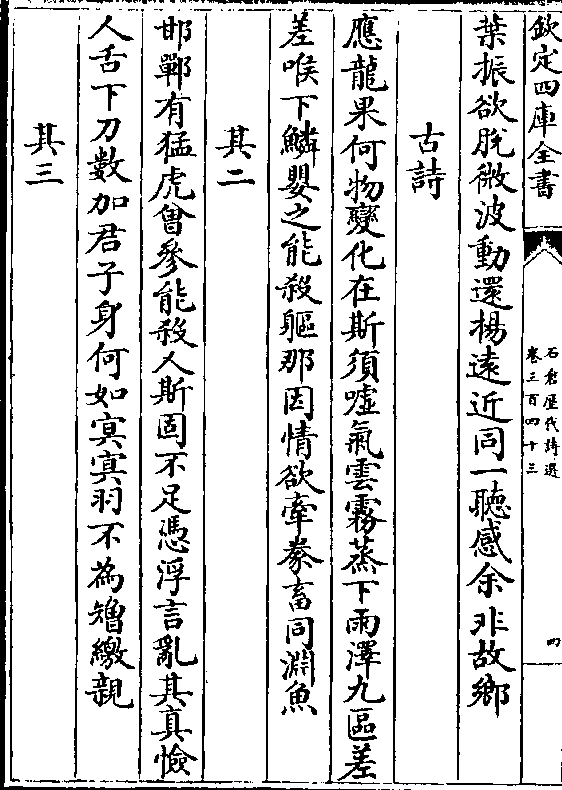 欽定四庫全書
石倉歷代詩選
卷三百四十三
四
葉振欲脫微波動還揚遠近同一聽感余非故鄉
古詩
應龍果何物變化在斯須噓氣雲霧蒸下雨澤九區差
差喉下鱗嬰之能殺軀那因情欲牽豢畜同淵魚
其二
邯鄲有猛虎曾參能殺人斯固不足憑浮言亂其真憸
人舌下刀數加君子身何如冥冥羽不為矰繳親
其三